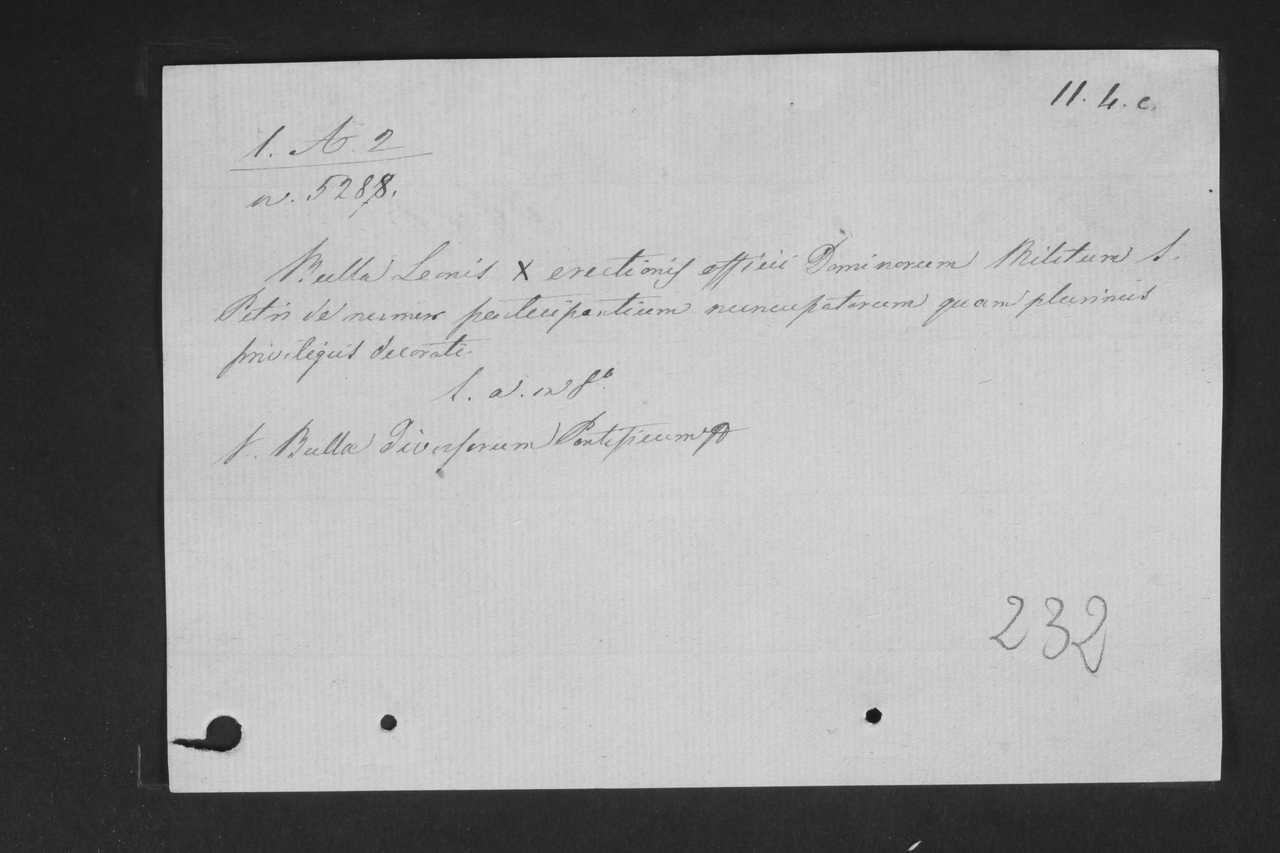 11. 4. c.
1. A. 2
n. 5288.
Bulla Leonis X erectionis officii Dominorum Militum S.
Petri de numero participantium nuncupatorum quam plurimis
privilegiis decorati.
s. a. in 8°.
V. Bulla Diversorum Pontificum
232